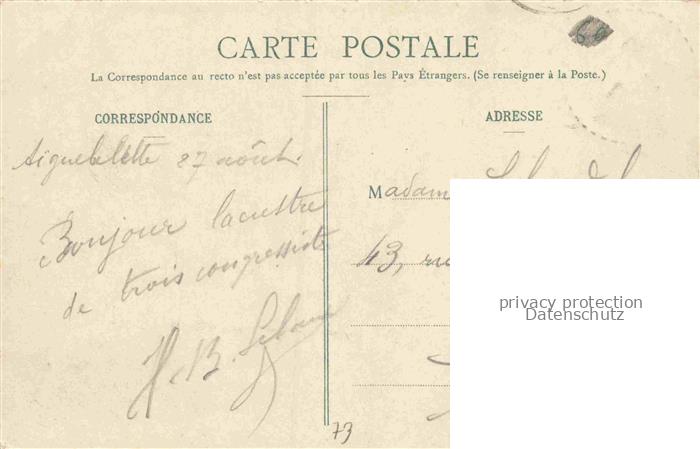 CARTE POSTALE
La Correspondance au recto n'est pas acceptée par tous les Pays Étrangers. (Se renseigner à la Poste.)
CORRESPONDANCE
Aiguebelette 27 août.
Bonjour lacustre
de trois congressistes
H. B.
ADRESSE
Madam
43, ru
privacy protection
Datenschutz
73